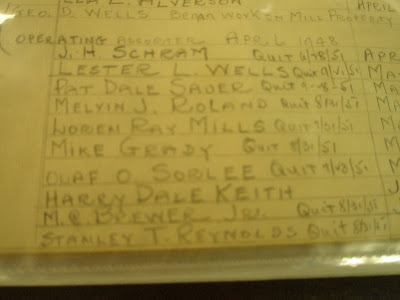 ALVERSON APRIL
GEO. D. WELLS. BEGAN WORK ON MILL PROPERTY
(OPERATING APRIL 1948
J. H. SCHRAM QUIT 6/28/51 APR
LESTER L. WELLS QUIT MA
PAT DALE SAUER QUIT 9-28-51 MA
MELVIN J. ROLAND QUIT 8/31/51 MA
LOREN RAY MILLS QUIT 9/21/51 M
MIKE GRADY QUIT 8/31/51
OLAF O. SOBLEE QUIT 9/28/51
HARRY DALE KEITH J
M. C. BREWER JR. QUIT 8/31/51
STANLEY T. REYNOLDS QUIT 8/31/51